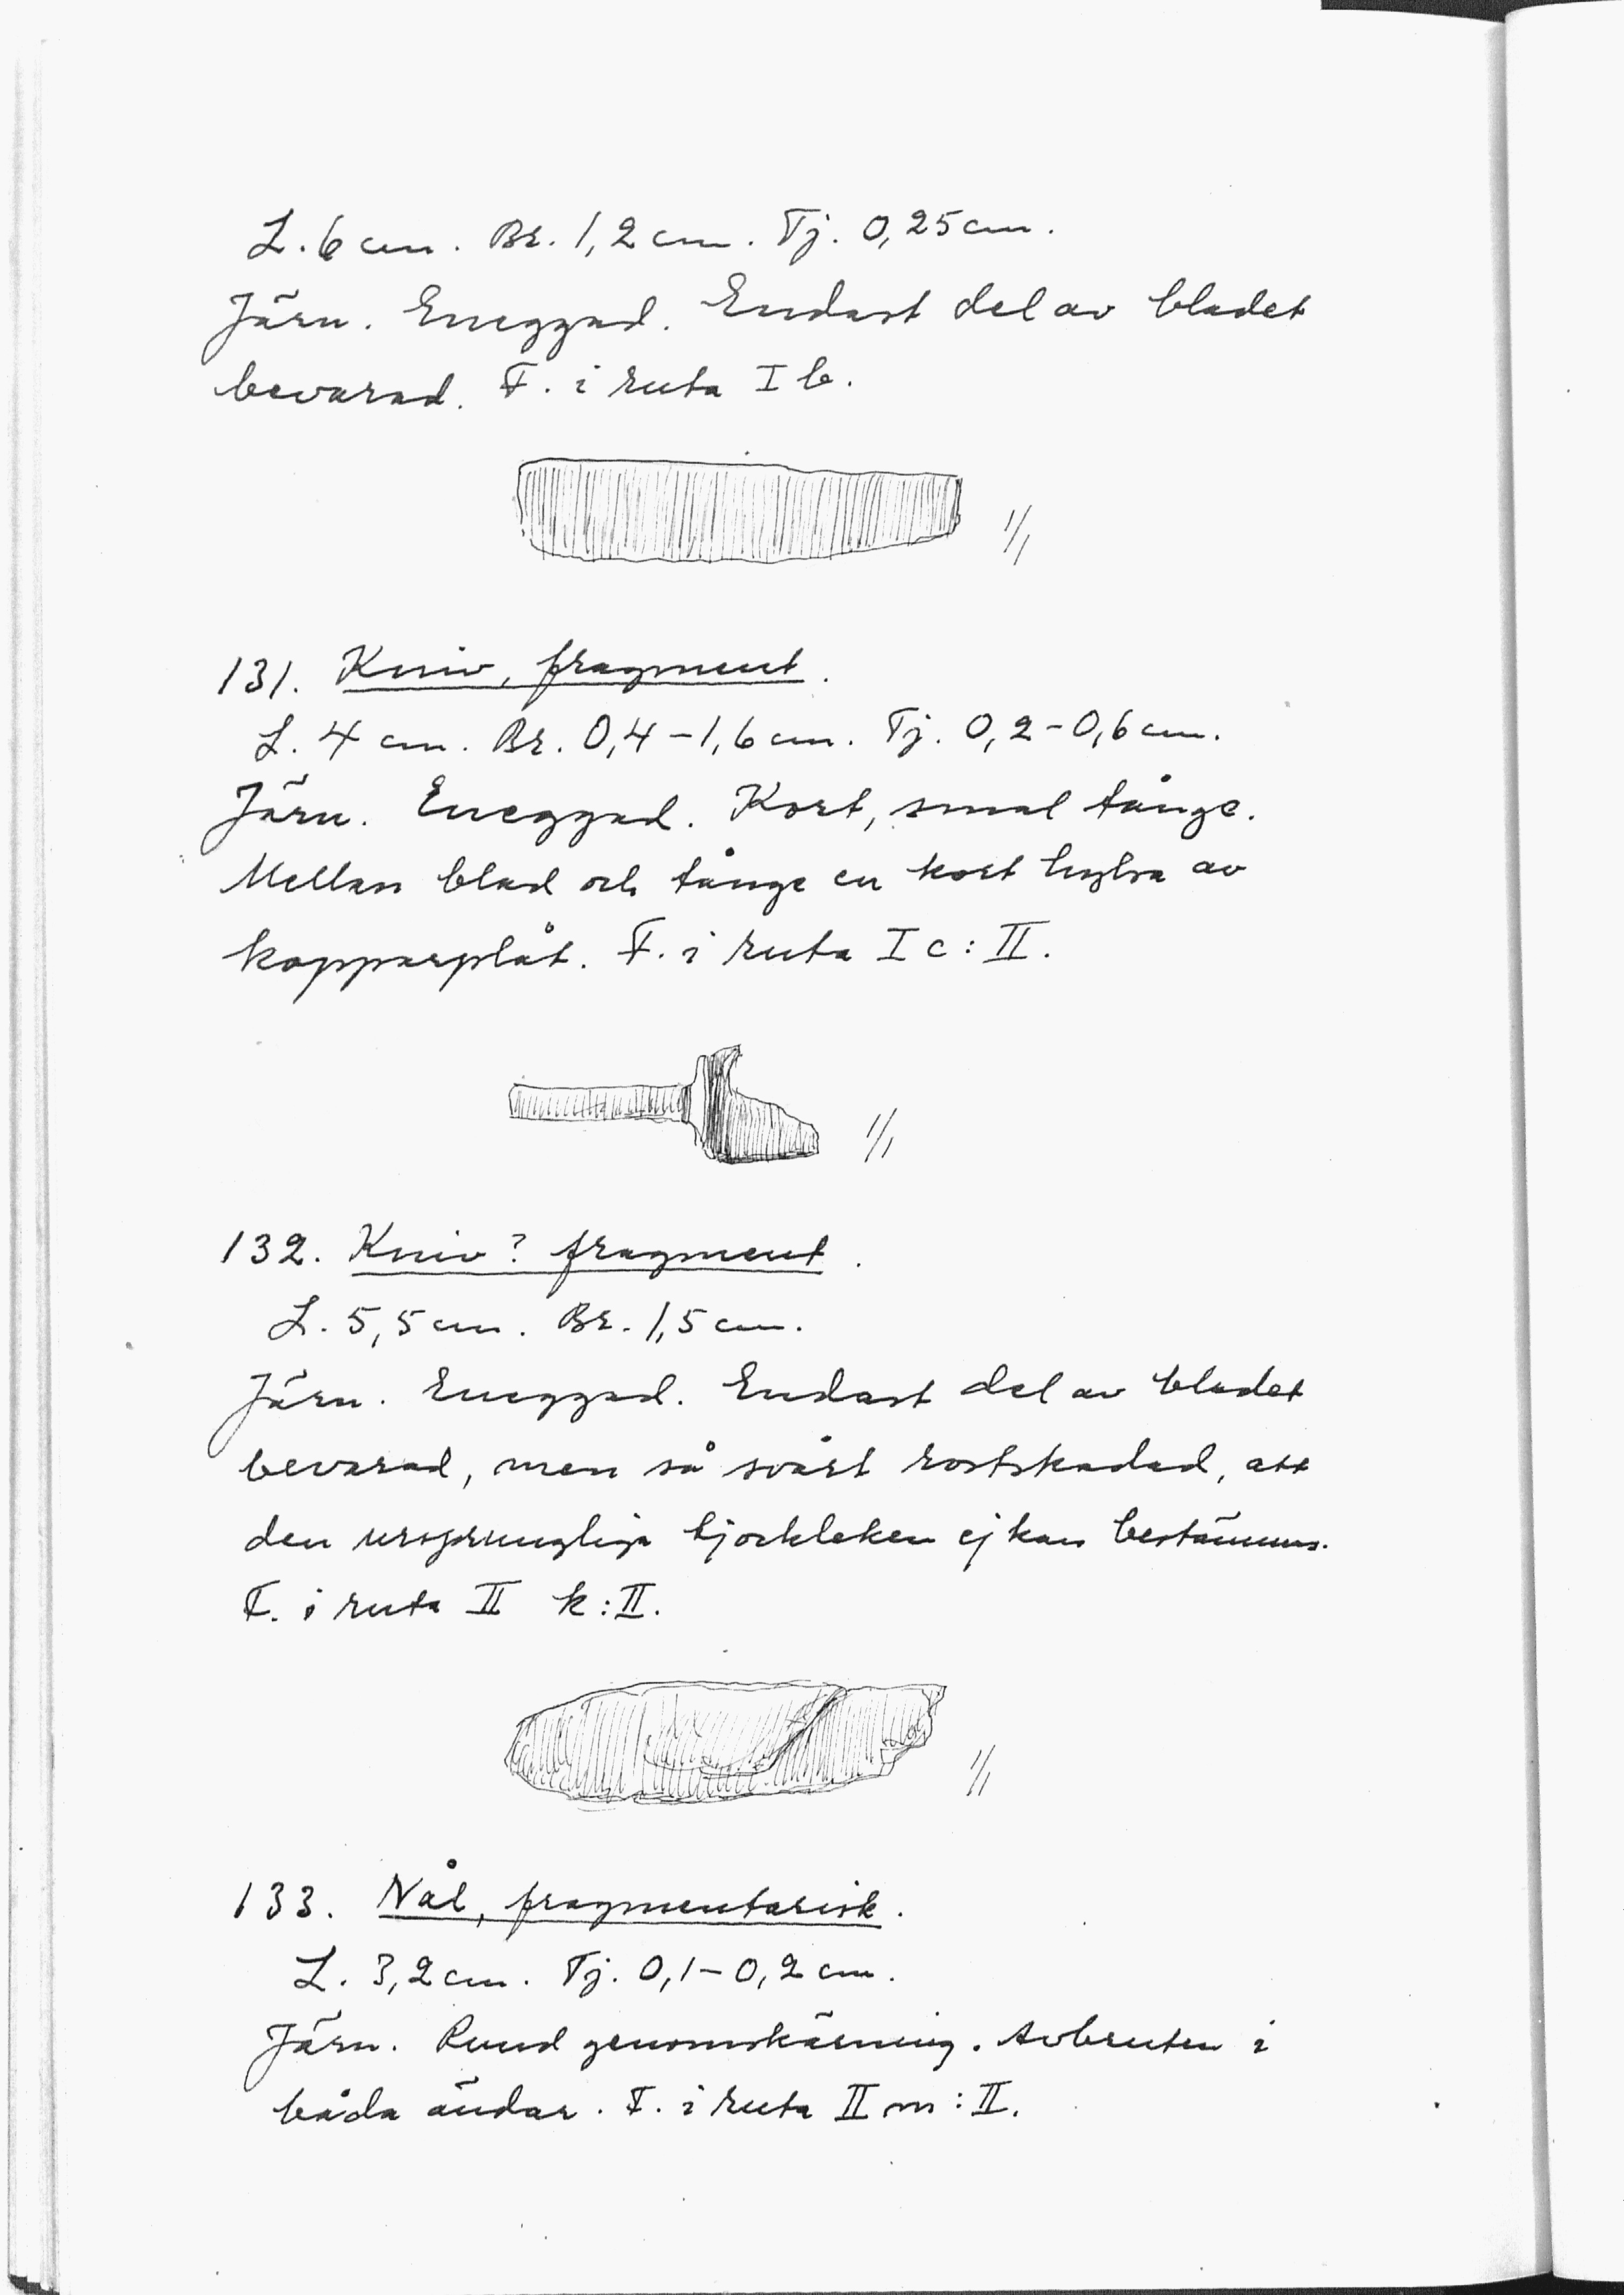 L. 6 cm. Br. 1,2 cm. Tj. 0,25 cm.
Järn. Eneggad. Endast del av bladet
bevarad. F. i ruta I b.
1/1
131. Kniv, fragment.
L. 4 cm. Br. 0,4-1,6 cm. Tj. 0,2-0,6 cm.
Järn. Eneggad. Kort, smal tånge.
Mellan blad och tånge en kort hylsa av
kopparplåt. F. i ruta I c: II.
1/1
132. Kniv? fragment.
L. 5,5 cm. Br. 1,5 cm.
Järn. Eneggad. Endast del av bladet
bevarad, men så svårt rostskadad, att
den ursprungliga tjockleken ej kan bestämmas.
F. i ruta II k: II.
1/1
133. Nål, fragmentarisk.
L. 3,2 cm. Tj. 0,1-0,2 cm.
Järn. Rund genomskärning. Avbruten i
båda ändar. F. i ruta II m: II.